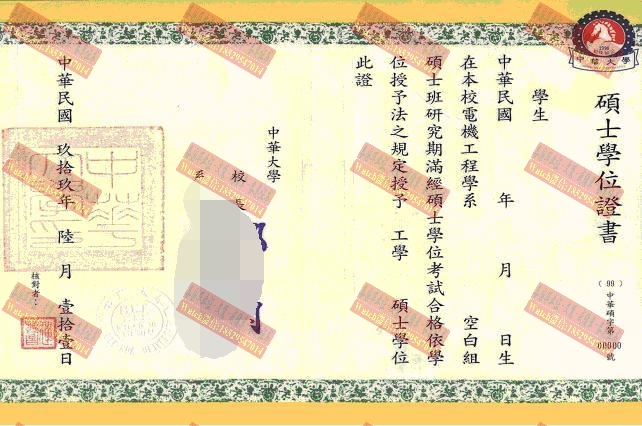 中華大學
碩士學位證書
（99）中華碩字第00000號
學生
中華民國　年　月　日生
在本校電機工程學系　空白組
碩士班研究期滿經碩士學位考試合格依學
位授予法之規定授予　工學　碩士學位
此證
中華大學
校長
系
中華民國　玖拾玖年　陸　月　壹拾壹日
核對者：